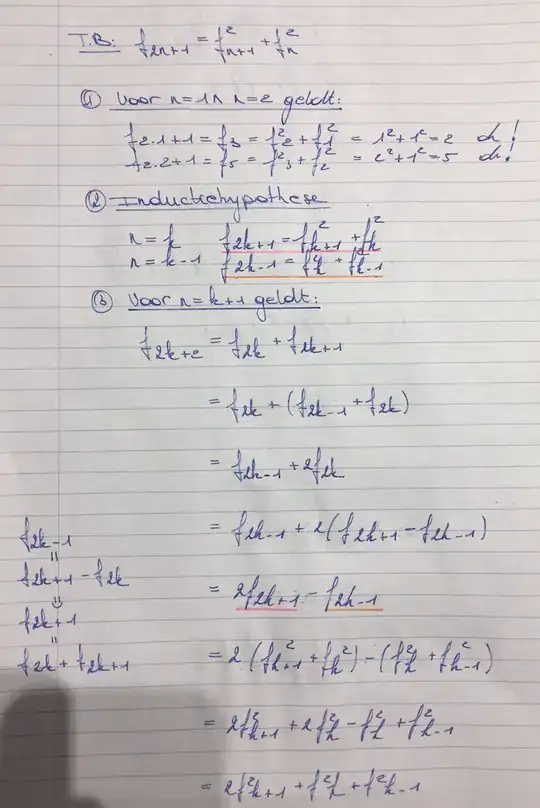 T.B: f₂ₙ₊₁ = f²ₙ₊₁ + f²ₙ
① Voor n=1 ∧ n=2 geldt:
f₂.₁₊₁ = f₃ = f²₂ + f²₁ = 1² + 1² = 2 ok!
f₂.₂₊₁ = f₅ = f²₃ + f²₂ = 2² + 1² = 5 ok!
② Inductiehypothese
n = k f₂ₖ₊₁ = f²ₖ₊₁ + f²ₖ
n = k-1 f₂ₖ₋₁ = f²ₖ + f²ₖ₋₁
③ Voor n = k+1 geldt:
f₂ₖ₊₂ = f₂ₖ + f₂ₖ₊₁
= f₂ₖ + (f₂ₖ₋₁ + f₂ₖ)
= f₂ₖ₋₁ + 2f₂ₖ
= f₂ₖ₋₁ + 2(f₂ₖ₊₁ - f₂ₖ₋₁)
= 2f₂ₖ₊₁ - f₂ₖ₋₁
= 2(f²ₖ₊₁ + f²ₖ) - (f²ₖ + f²ₖ₋₁)
= 2f²ₖ₊₁ + 2f²ₖ - f²ₖ + f²ₖ₋₁
= 2f²ₖ₊₁ + f²ₖ + f²ₖ₋₁
f₂ₖ₋₁
=
f₂ₖ₊₁ - f₂ₖ
f₂ₖ₊₁
=
f₂ₖ + f₂ₖ₊₁